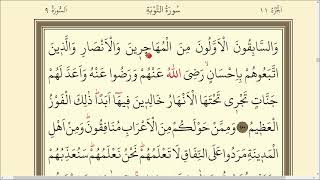 الجزء ١١ سورة التوبة السورة ٩
وَالسَّابِقُونَ الْاَوَّلُونَ مِنَ الْمُهَاجِرِينَ وَالْاَنْصَارِ وَالَّذِينَ
اتَّبَعُوهُمْ بِاِحْسَانٍ رَضِىَ اللّٰهُ عَنْهُمْ وَرَضُوا عَنْهُ وَاَعَدَّ لَهُمْ
جَنَّاتٍ تَجْرِى تَحْتَهَا الْاَنْهَارُ خَالِدِينَ فِيهَٓا اَبَدًا ذٰلِكَ الْفَوْزُ
الْعَظِيمُ ١٠٠ وَمِمَّنْ حَوْلَكُمْ مِنَ الْاَعْرَابِ مُنَافِقُونَ وَمِنْ اَهْلِ
الْمَدِينَةِ مَرَدُوا عَلَى النِّفَاقِ لَا تَعْلَمُهُمْ نَحْنُ نَعْلَمُهُمْ سَنُعَذِّبُهُمْ